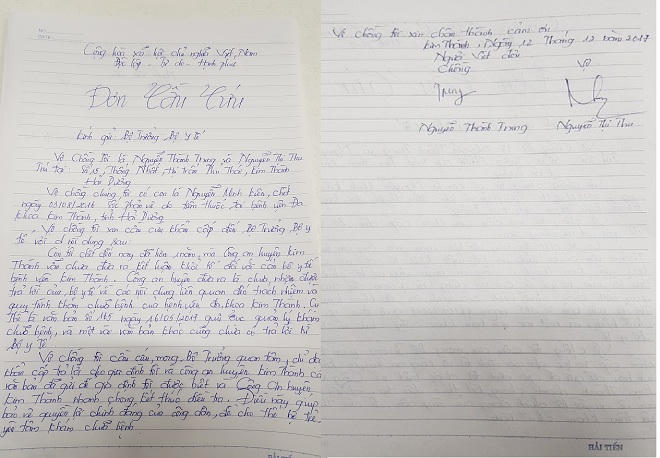 Cộng hòa xã hội chủ nghĩa Việt Nam
Độc lập - Tự do - Hạnh phúc
Đơn Cầu Cứu
Kính gửi Bộ Trưởng Bộ y tế
Vợ Chồng tôi là Nguyễn Thành Trung và Nguyễn Thị Thu
Trú tại Số 13, Thống Nhất, thị Trấn Phú Thái, Kim Thành
Hải Dương
Vợ chồng chúng tôi có con là Nguyễn Minh Kiên, chết
ngày 03/08/2016 sốc phản vệ do tiêm thuốc tại bệnh viện Đa
khoa Kim Thành, tỉnh Hải Dương
Vợ chồng tôi xin cầu cứu khẩn cấp đến Bộ Trưởng Bộ y
tế với nội dung sau:
Con tôi chết đến nay đã hơn 1 năm, mà Công an huyện Kim
Thành vẫn chưa đưa ra kết luận khởi tố đối với cán bộ y tế
bệnh viện Kim Thành. Công an huyện đưa ra là chưa nhận được
trả lời của bộ y tế về các nội dung liên quan đến trách nhiệm và
quy trình khám chữa bệnh của bệnh viện đa khoa Kim Thành. Cụ
thể là văn bản số 145 ngày 16/05/2017 cục quản lý khám
chữa bệnh, và một vài văn bản khác cũng chưa có trả lời từ
Bộ y Tế
Vợ chồng tôi cầu cứu, mong Bộ Trưởng quan tâm, chỉ đạo
khẩn cấp trả lời cho gia đình tôi và công an huyện Kim Thành có
văn bản để gửi để gia đình tôi được biết và Công An huyện
Kim Thành nhanh chóng kết thúc điều tra. Điều này giúp
bảo vệ quyền lợi chính đáng của công dân, để cho thế hệ trẻ
yên tâm khám chữa bệnh
Vợ chồng tôi xin chân thành cảm ơn
Kim Thành, Ngày 12 Tháng 12 năm 2017
Người Viết đơn
Chồng Vợ
Trung
Nguyễn Thành Trung Nguyễn Thị Thu
HẢI TIẾN